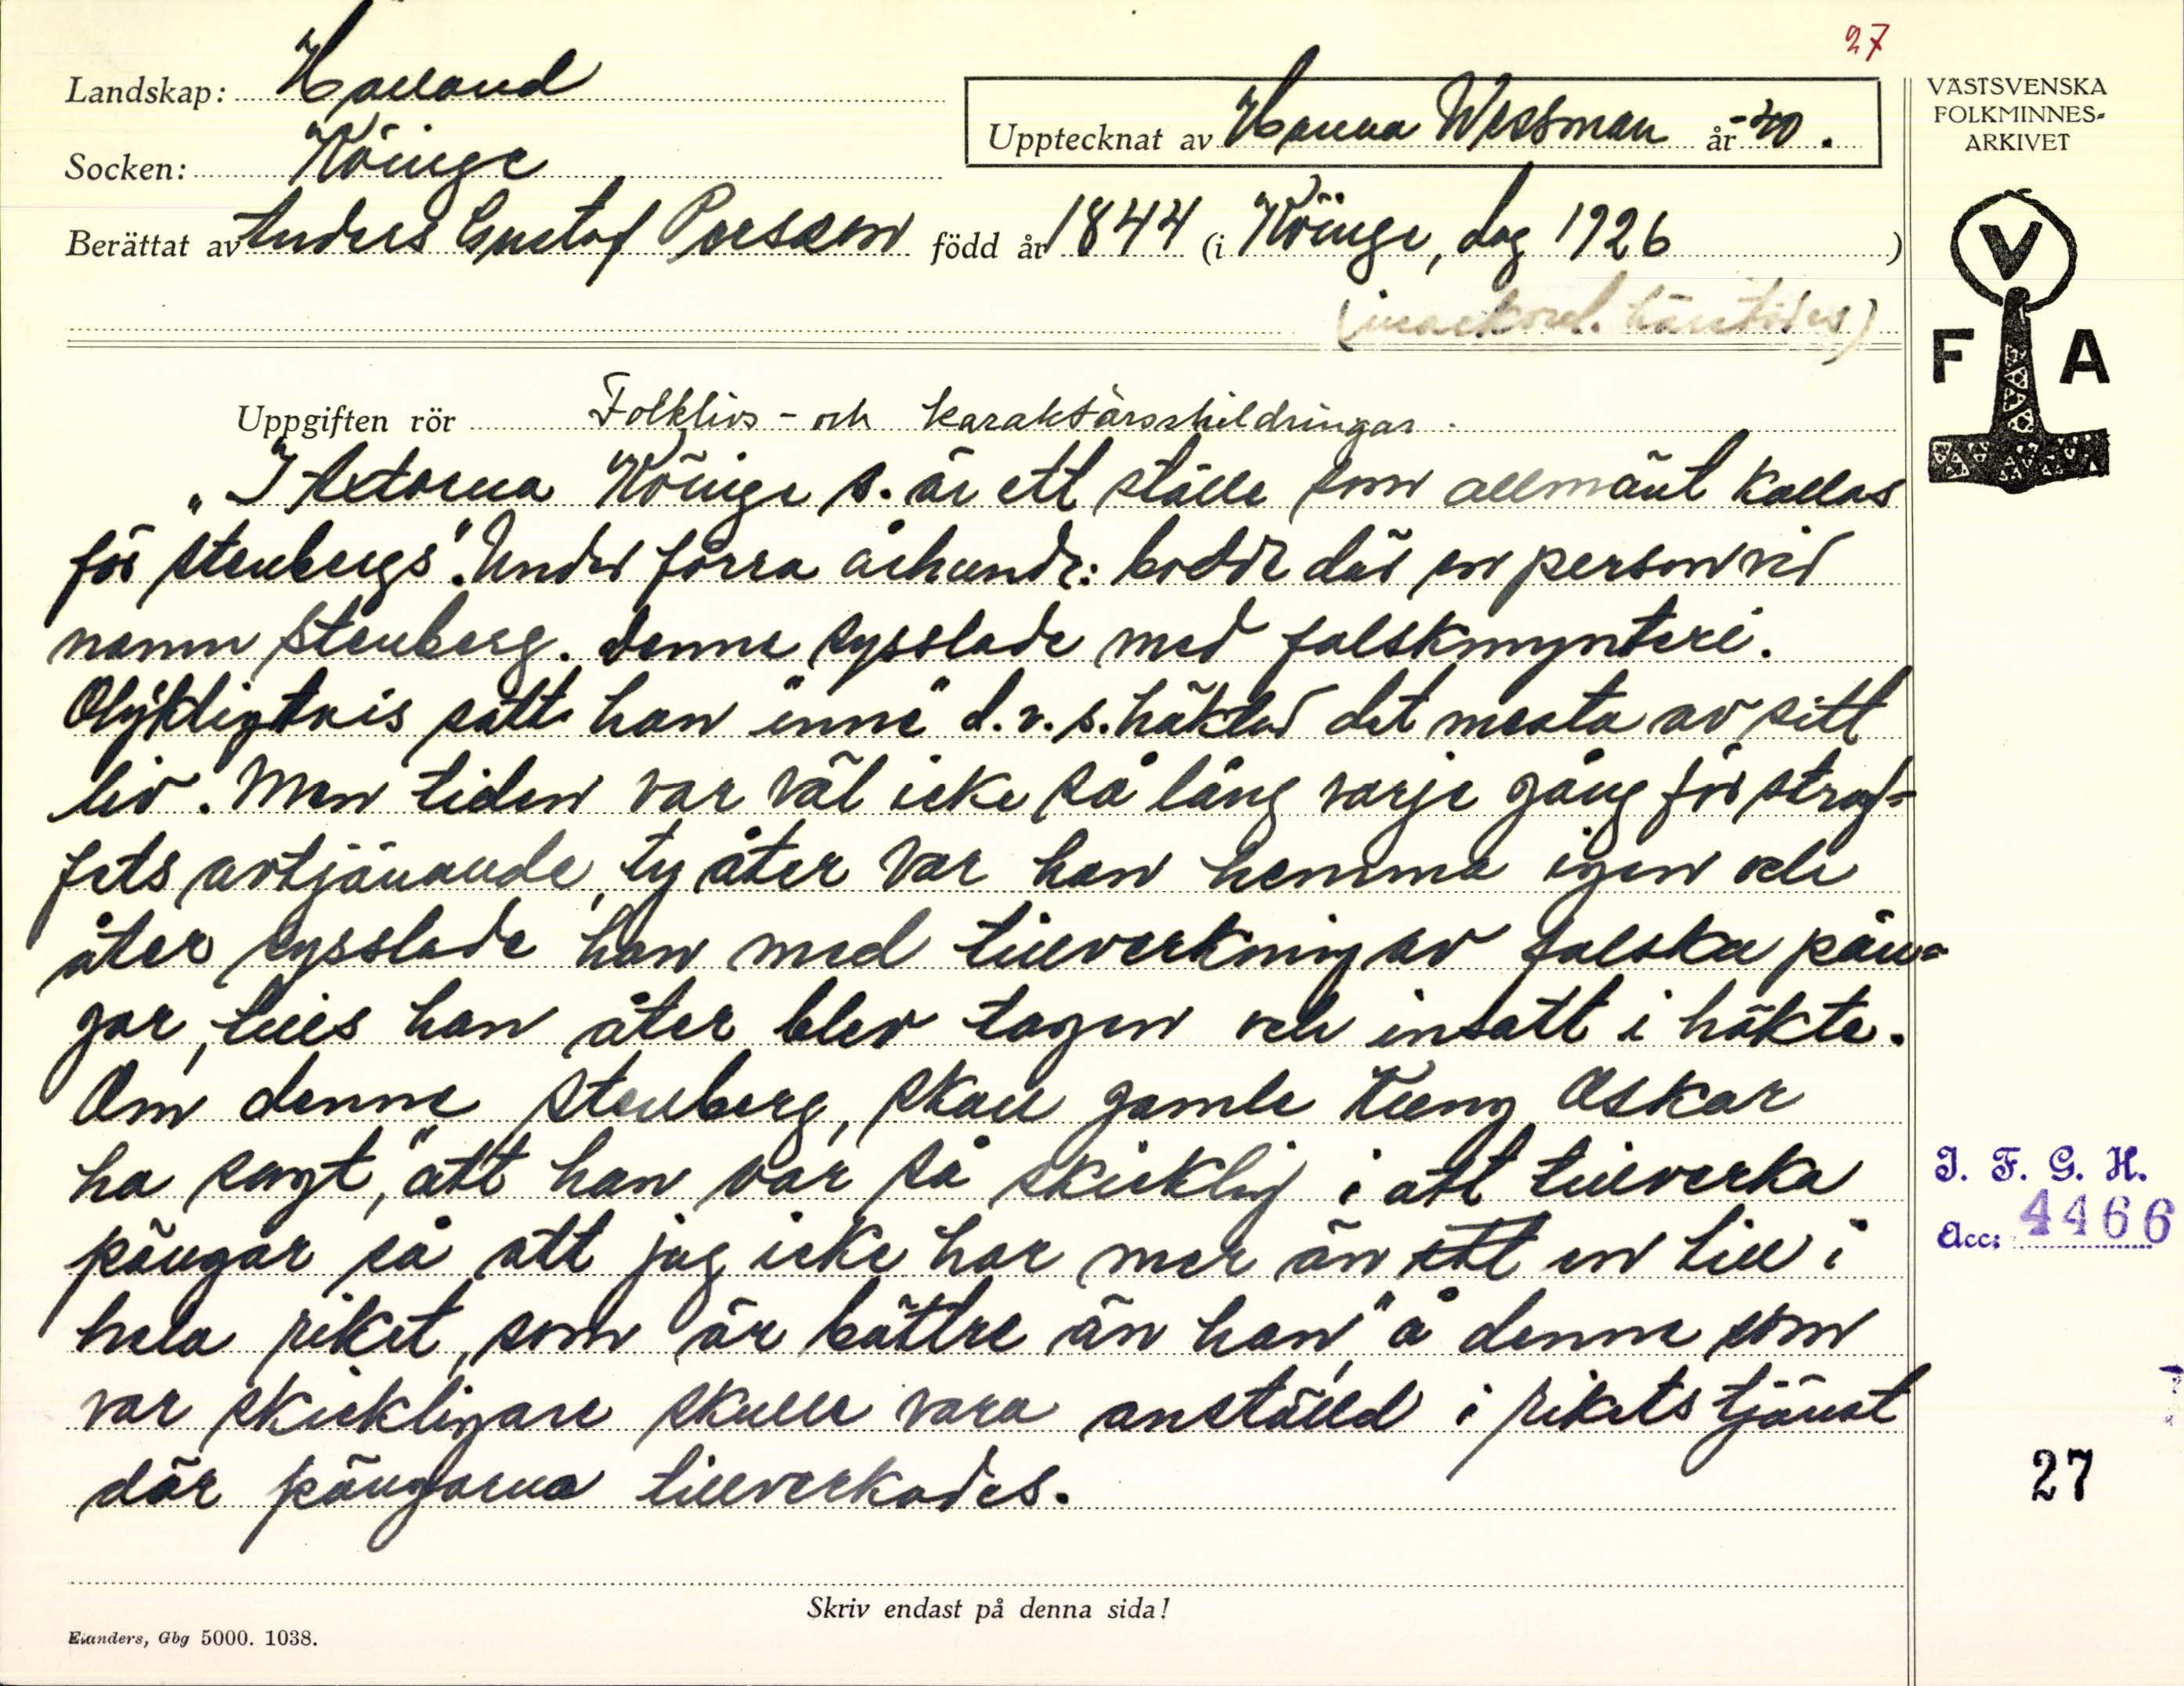 27
Landskap: Halland
Upptecknat av Hanna Wessman år -40.
Socken: Köinge
Berättat av Anders Gustaf Persson född år 1844 (i Köinge, dog 1926)
VÄSTSVENSKA
FOLKMINNES-
ARKIVET
V
F A
Uppgiften rör Folklivs- och karaktärsskildringar.
"I Köinge s. är ett ställe som allmänt kallas
för Stenbergs". Under förra århundr: bodde där en person vid
namn Stenberg. Denne sysslade med falskmynteri.
Olykligtvis satt han "inne" d.v.s. häktad det mesta av sitt
liv. Men tiden var väl icke så lång varje gång för straf-
fets avtjänande, ty åter var han hemma igen och
åter sysslade han med tillverkning av falska pän=
gar, tills han åter blev tagen och insatt i häkte.
Om denne Stenberg, skall gamle Kung Oskar
ha sagt, "att han var så skicklig i att tillverka
pängar så att jag icke har mer än ett en till i
hela riket, som är bättre än han," å denne som
var skickligare skulle vara anställd i rikets tjänst
där pängarna tillverkades.
I. F. G. H.
Acc: 4466
27
Skriv endast på denna sida!
Elanders, Gbg 5000. 1038.